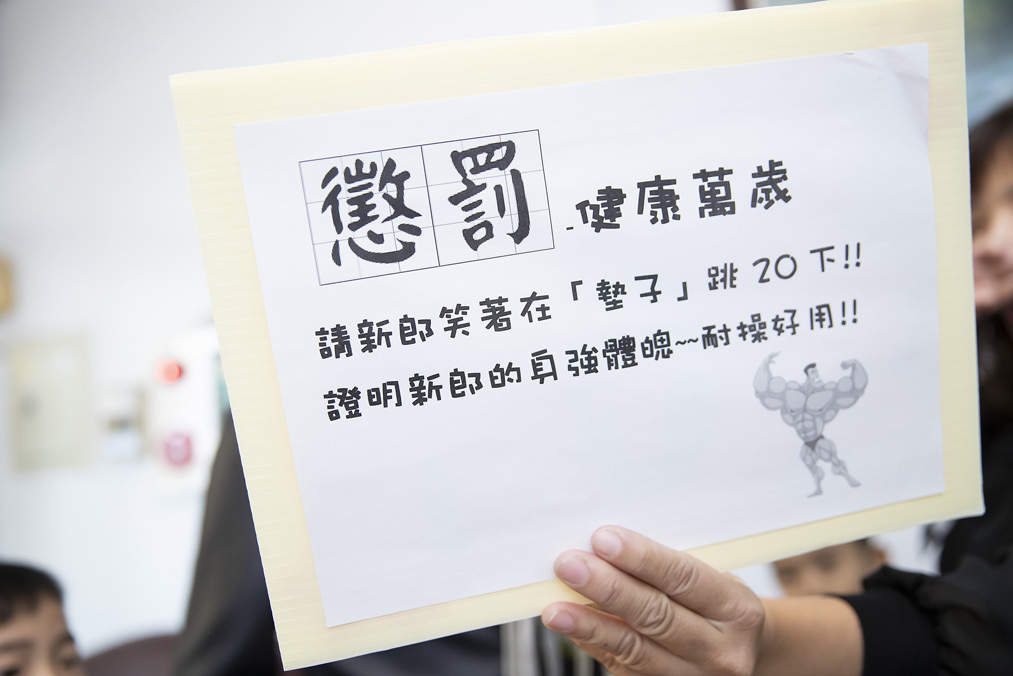 懲罰-健康萬歲
請新郎笑著在「墊子」跳20下!!
證明新郎的身強體魄~~耐操好用!!